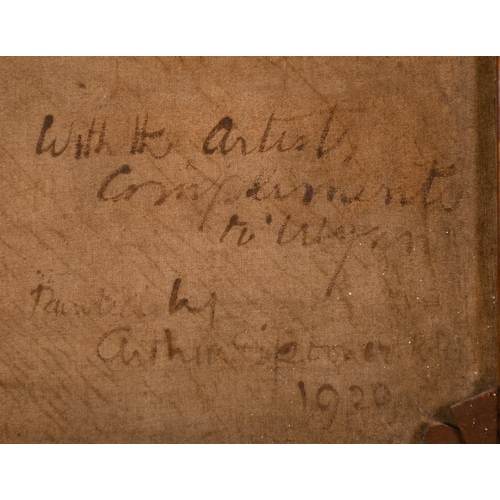 With the Artists
Compliments
to
Painted by
Arthur Spooner
1920